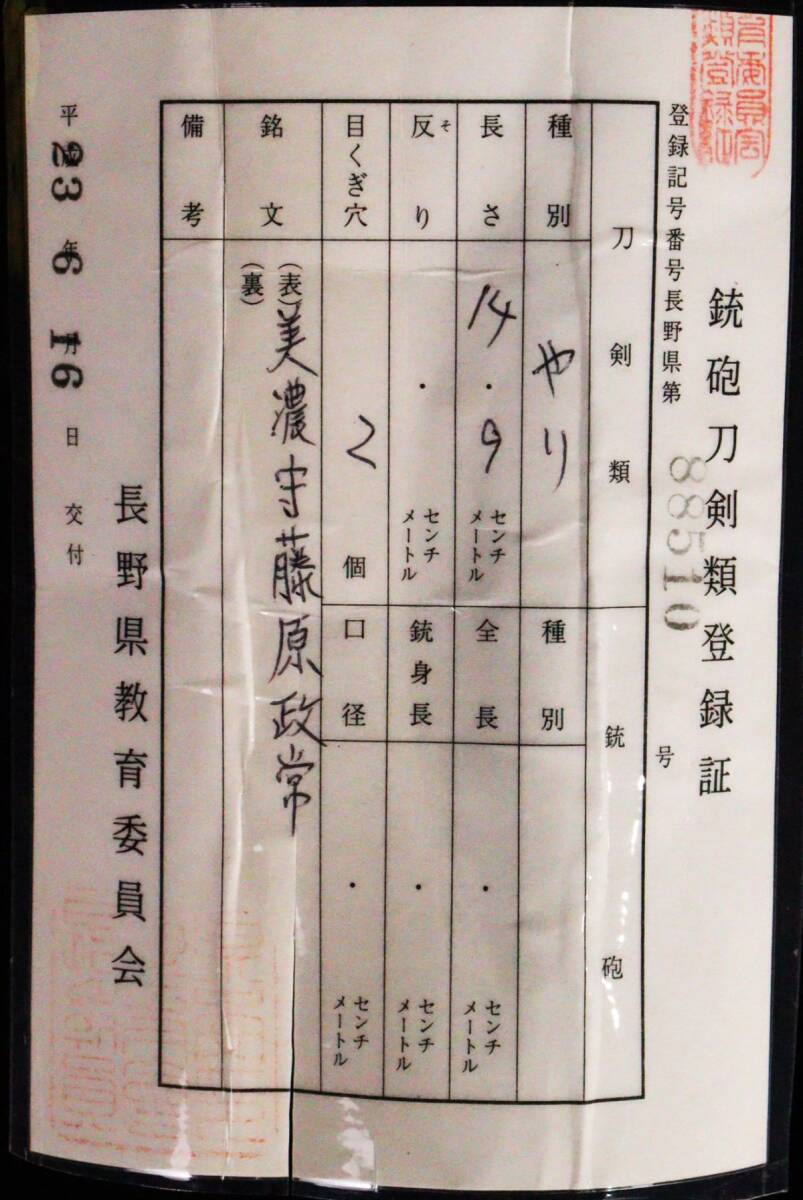 銃砲刀剣類登録証
登録記号番号長野県第88510号
刀剣類
種別
やり
長さ
14.9センチメートル
反り
そ
・センチメートル
目くぎ穴
2個
銘文
(表)美濃守藤原政常
(裏)
備考
銃砲
種別
全長
・センチメートル
銃身長
・センチメートル
口径
・センチメートル
平成23年6月16日交付
長野県教育委員会